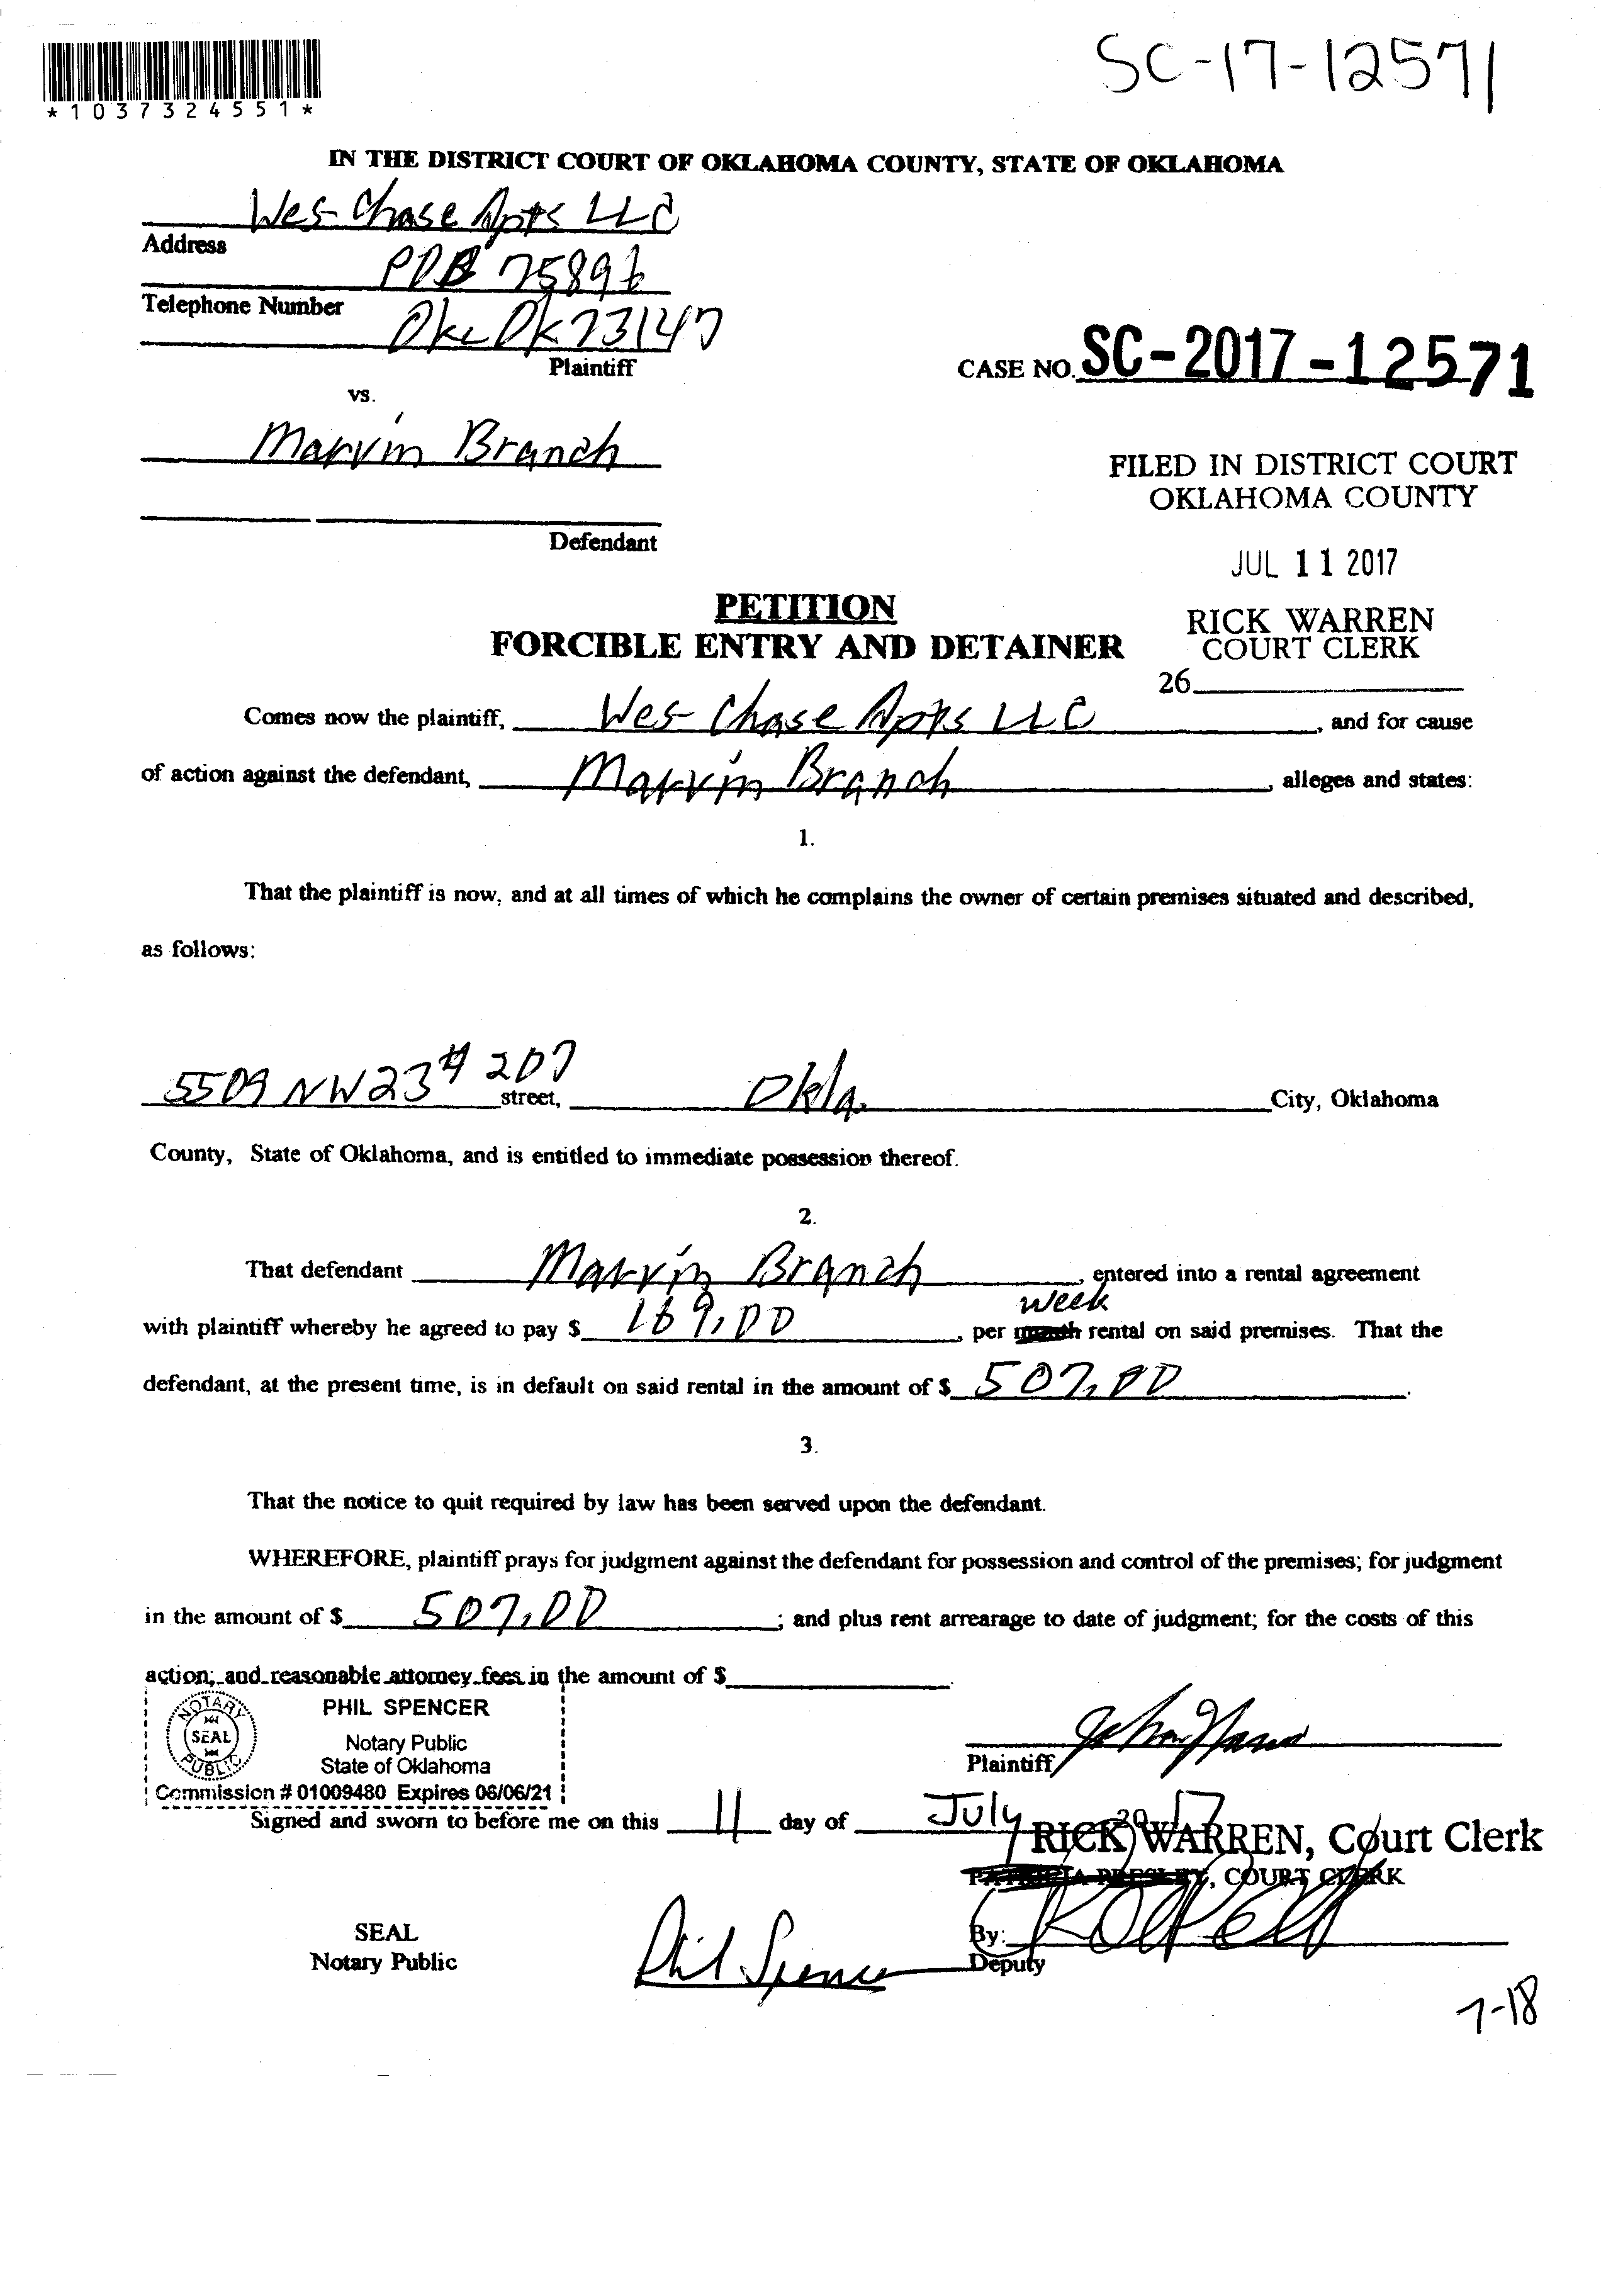 SC-17-12571
*1037324551*
IN THE DISTRICT COURT OF OKLAHOMA COUNTY, STATE OF OKLAHOMA
Wes-Chase Apts LLC
Address
POB 75896
Telephone Number
Okc Ok 73147
Plaintiff
CASE NO. SC-2017-12571
vs.
Marvin Branch
FILED IN DISTRICT COURT
OKLAHOMA COUNTY
Defendant
JUL 11 2017
PETITION
RICK WARREN
FORCIBLE ENTRY AND DETAINER
COURT CLERK
26
Comes now the plaintiff, Wes-Chase Apts LLC, and for cause
of action against the defendant, Marvin Branch, alleges and states:
1.
That the plaintiff is now, and at all times of which he complains the owner of certain premises situated and described,
as follows:
5509 NW 23 # 207 street, Okla. City, Oklahoma
County, State of Oklahoma, and is entitled to immediate possession thereof.
2.
That defendant Marvin Branch, entered into a rental agreement
week
with plaintiff whereby he agreed to pay $ 169.00, per month rental on said premises. That the
defendant, at the present time, is in default on said rental in the amount of $ 507.00.
3.
That the notice to quit required by law has been served upon the defendant.
WHEREFORE, plaintiff prays for judgment against the defendant for possession and control of the premises; for judgment
in the amount of $ 507.00; and plus rent arrearage to date of judgment; for the costs of this
action; and reasonable attorney fees in the amount of $
NOTARY SEAL PUBLIC
PHIL SPENCER
Notary Public
State of Oklahoma
Commission # 01009480 Expires 06/06/21
Plaintiff
Signed and sworn to before me on this 11 day of July 2017
RICK WARREN, Court Clerk
PATRICIA PRESLEY, COURT CLERK
SEAL
Notary Public
Phil Spencer
By:
Deputy
7-18